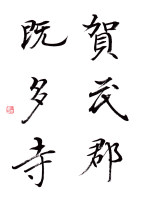 賀茂郡
既多寺